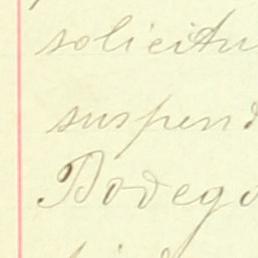 solicitu
suspend
Bodego